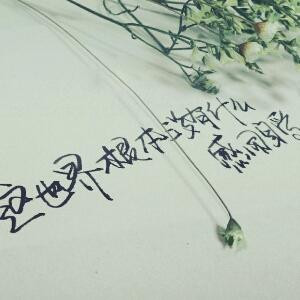 这世界根本没有什么
感同身受。